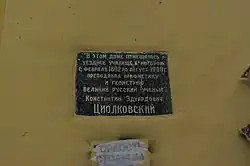 В ЭТОМ ДОМЕ ПОМЕЩАЛОСЬ
УЕЗДНОЕ УЧИЛИЩЕ,
С ФЕВРАЛЯ 1892 ПО
ПРЕПОДАВАЛ АРИФМЕТИКУ
И ГЕОМЕТРИЮ
ВЕЛИКИЙ РУССКИЙ УЧЕНЫЙ
КОНСТАНТИН ЭДУАРДОВИЧ
ЦИОЛКОВСКИЙ